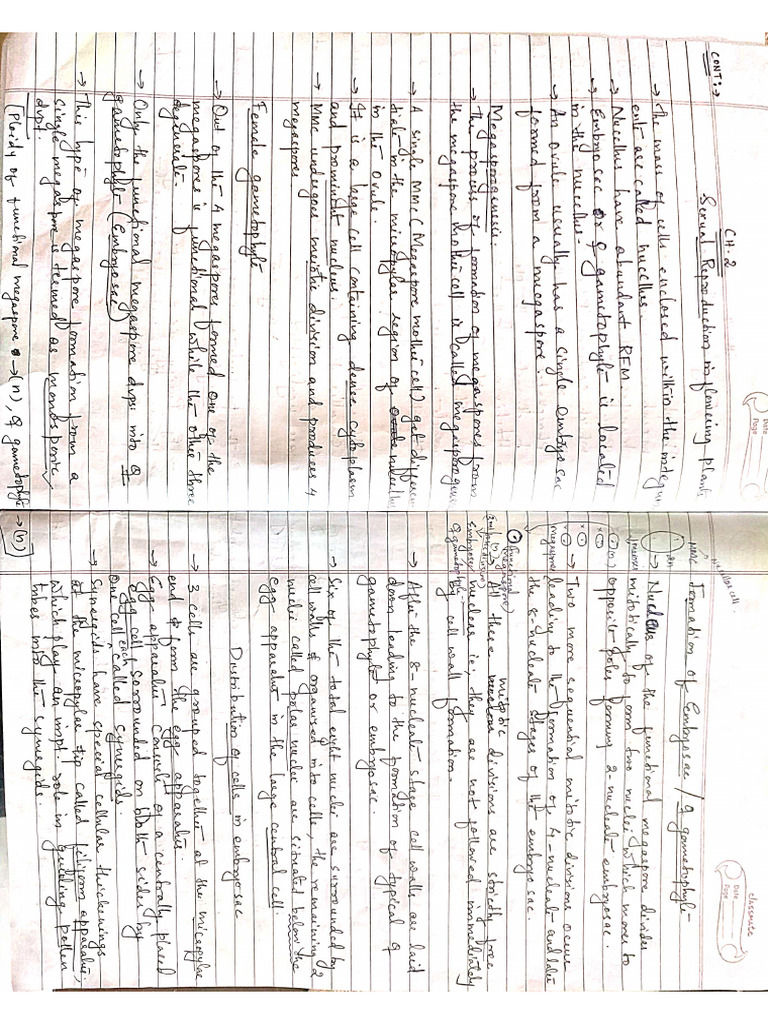 CONT:→
CH.2
Sexual Reproduction in flowering plants
Date
Page
→ The mass of cells enclosed within the integum
ents are called nucellus.
→ Nucellus have abundant RFM
→ Embryosac or ♀ gametophyte is located
in the nucellus.
→ An ovule usually has a single embryo sac
formed from a megaspore.
Megasporogenesis.
→ The process of formation of megaspores from
the megaspore mother cell is called megasporogenesis
→ A single MMC (Megaspore mother cell) get differen
tiate in the micropylar region of nucellus
in the ovule.
→ It is a large cell containing dense cytoplasm
and prominent nucleus.
→ MMC undergoes meiotic division and produces 4
megaspores
Female gametophyte
→ Out of the 4 megaspores formed one of the
megaspore is functional while the other three
degenerate.
→ Only the functional megaspore dvps into ♀
gametophyte (Embryosac)
→ This type of megaspore formation from a
single megaspore is teemed as monosporic
dvpt.
(Ploidy of functional megaspore → (n), ♀ gametophyte → (n))
classmate
Date
Page
Formation of Embryosac / ♀ gametophyte
Nucellus cell
2n
MMC
→ Nucleus of the functional megaspore divides
mitotically to form two nuclei which moves to
opposite poles forming 2-nucleate embryosac.
→ Two more sequential mitotic divisions occur
leading to the formation of 4-nucleate and later
the 8-nucleate stages of the embryo sac.
megaspore
functional
megaspore
(n)
Embryosac
♀ gametophyte
→ All these mitotic divisions are strictly free
nuclear ie; they are not followed immediately
by cell wall formation.
→ After the 8-nucleate stage cell walls are laid
down leading to the formation of typical ♀
gametophyte or embryosac.
→ Six of the total eight nuclei are surrounded by
cell walls & organized into cells, the remaining 2
nuclei called polar nuclei are situated below the
egg apparatus in the large central cell.
Distribution of cells in embryosac
→ 3 cells are grouped together at the micropylar
end & form the egg apparatus.
→ Egg apparatus consists of a centrally placed
egg cell surrounded on both sides by
one cell each called synergids.
→ Synergids have special cellular thickenings
at the micropylar tip called filiform apparatus,
which play an impt. role in guiding pollen
tubes into the synergids.